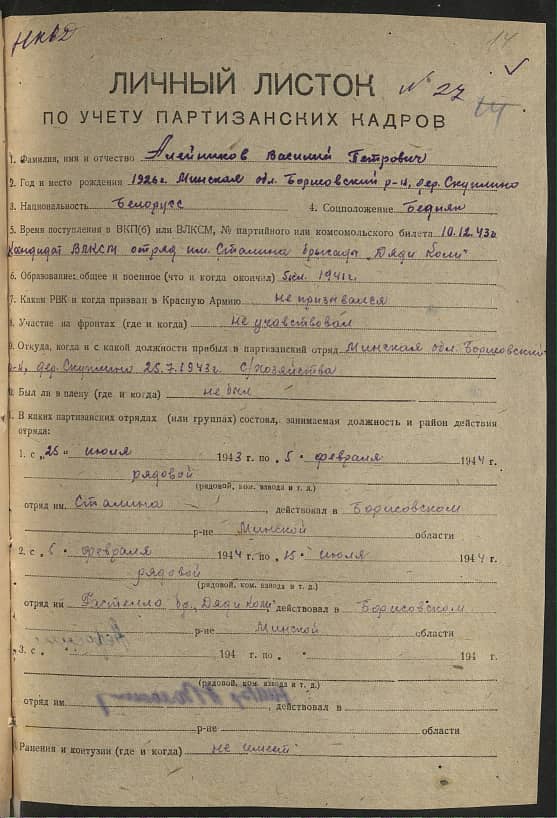 НКВД
14
ЛИЧНЫЙ ЛИСТОК № 27
ПО УЧЕТУ ПАРТИЗАНСКИХ КАДРОВ
1. Фамилия, имя и отчество Алейников Василий Петрович
2. Год и место рождения 1926 г. Минская обл. Борисовский р-н, дер. Скуплино
3. Национальность Белорусс 4. Соцположение Бедняк
5. Время поступления в ВКП(б) или ВЛКСМ, № партийного или комсомольского билета 10.12.43г
Кандидат ВЛКСМ отряд им. Сталина бригады „Дяди Коли"
6. Образование: общее и военное (что и когда окончил) 5 кл. 1941 г.
7. Каким РВК и когда призван в Красную Армию не призывался
8. Участие на фронтах (где и когда) не учавствовал
9. Откуда, когда и с какой должности прибыл в партизанский отряд Минская обл. Борисовский
р-н, дер. Скуплино 25.7.1943г. С/хозяйства
0. Был ли в плену (где и когда) не был
1. В каких партизанских отрядах (или группах) состоял, занимаемая должность и район действия
отряда:
1. с „25" июля 1943 г. по „5" февраля 1944 г.
рядовой
(рядовой, ком. взвода и т. д.)
отряд им. Сталина, действовал в Борисовском
р-не Минской области
2. с „ " февраля 1944 г. по „15" июля 1944 г.
рядовой
(рядовой, ком. взвода и т. д.)
отряд им Гастелло бр. „Дяди Коли" действовал в Борисовском
р-не Минской области
3. с „ " 194 г. по „ " 194 г.
(рядовой, ком. взвода и т. д.)
отряд им. , действовал в
р-не области
Ранения и контузии (где и когда) не имеет